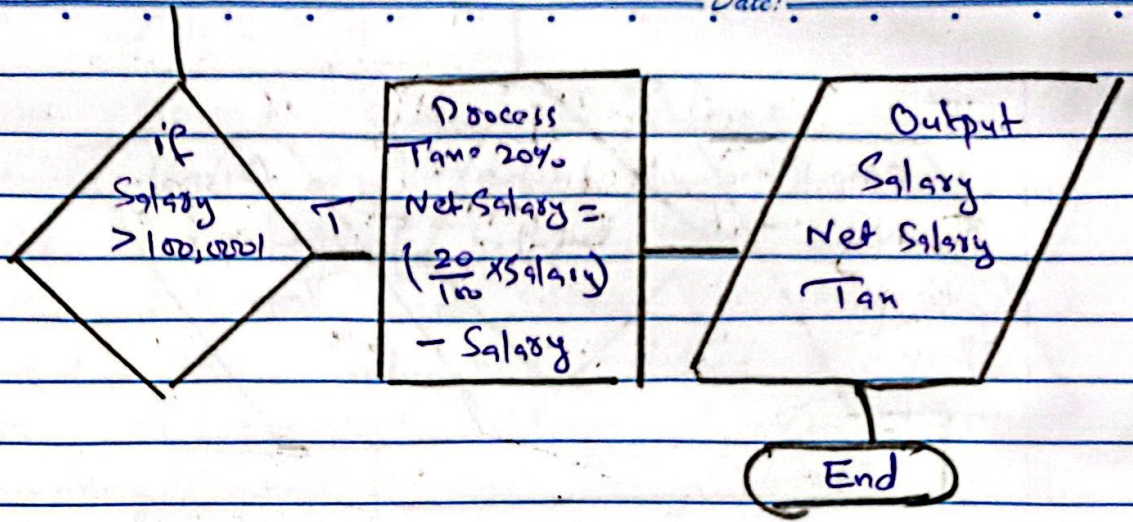 Date:
if
Salary
> 100,0001
T
Process
Tax= 20%
Net Salary =
(20/100 × Salary)
- Salary
Output
Salary
Net Salary
Tax
End